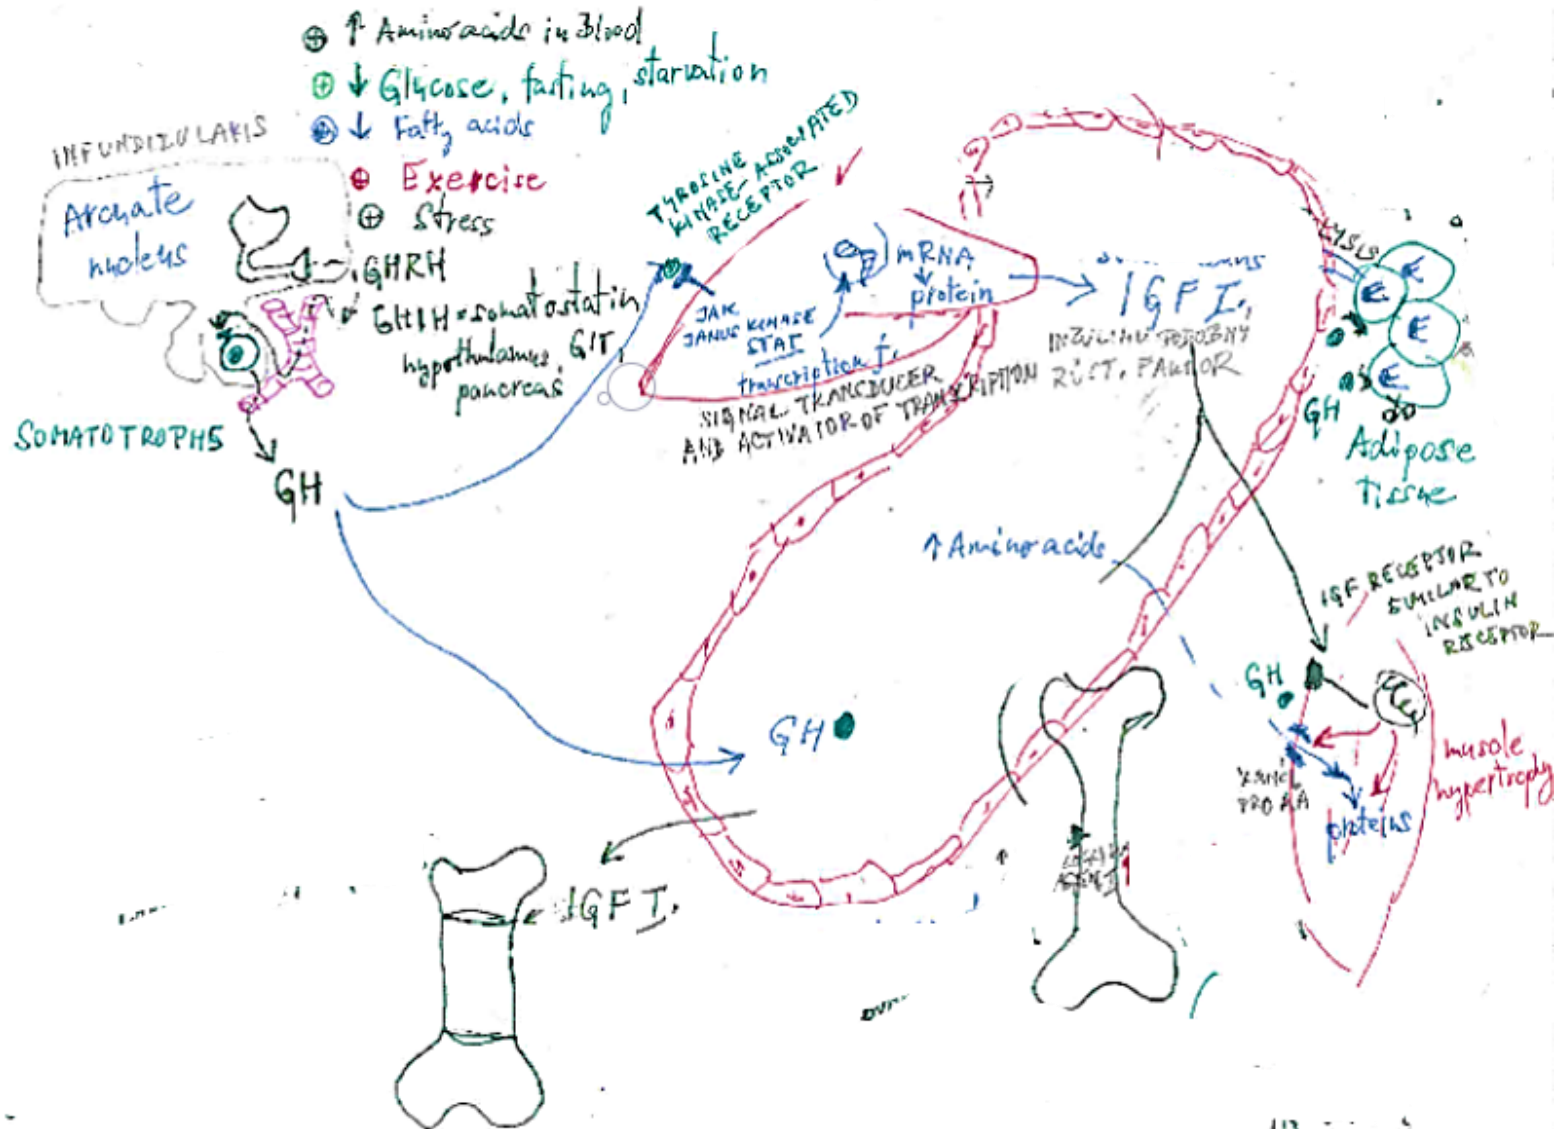 ⊕ ↑ Aminoacids in Blood
⊕ ↓ Glycose, fasting, starvation
⊕ ↓ Fatty acids
⊕ Exercise
⊕ Stress
INFUNDIBULARIS
Arcuate
nucleus
GHRH
GHIH = somatostatin
hypothalamus, GIT,
pancreas
SOMATOTROPHS
GH
TYROSINE
KINASE-ASSOCIATED
RECEPTOR
JAK
JANUS KINASE
STAT
transcription f.
SIGNAL TRANSDUCER
AND ACTIVATOR OF TRANSCRIPTION
mRNA
protein
IGF I.
LYSIS
E
E
E
E
GH
Adipose
tissue
↑ Aminoacids
IGF RECEPTOR
SIMILAR TO
INSULIN
RECEPTOR
GH
GH
muscle
hypertrophy
proteins
PRO AA
IGF I.